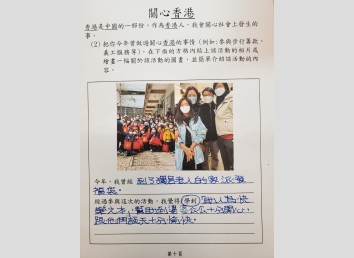 關心香港
香港是中國的一部份，作為香港人，我會關心社會上發生的
事。
(2) 把你今年曾做過關心香港的事情（例如：參與步行籌款、
義工服務等），在下面的方格內貼上該活動的相片或
繪畫一幅關於該活動的圖畫，並簡單介紹該活動的內
容。
今年，我曾經 到了獨居老人的家派發
福袋。
經過參與這次的活動，我覺得（學到）助人為快
樂之本，幫助到婆
跟他們談天十分愉快
第十頁